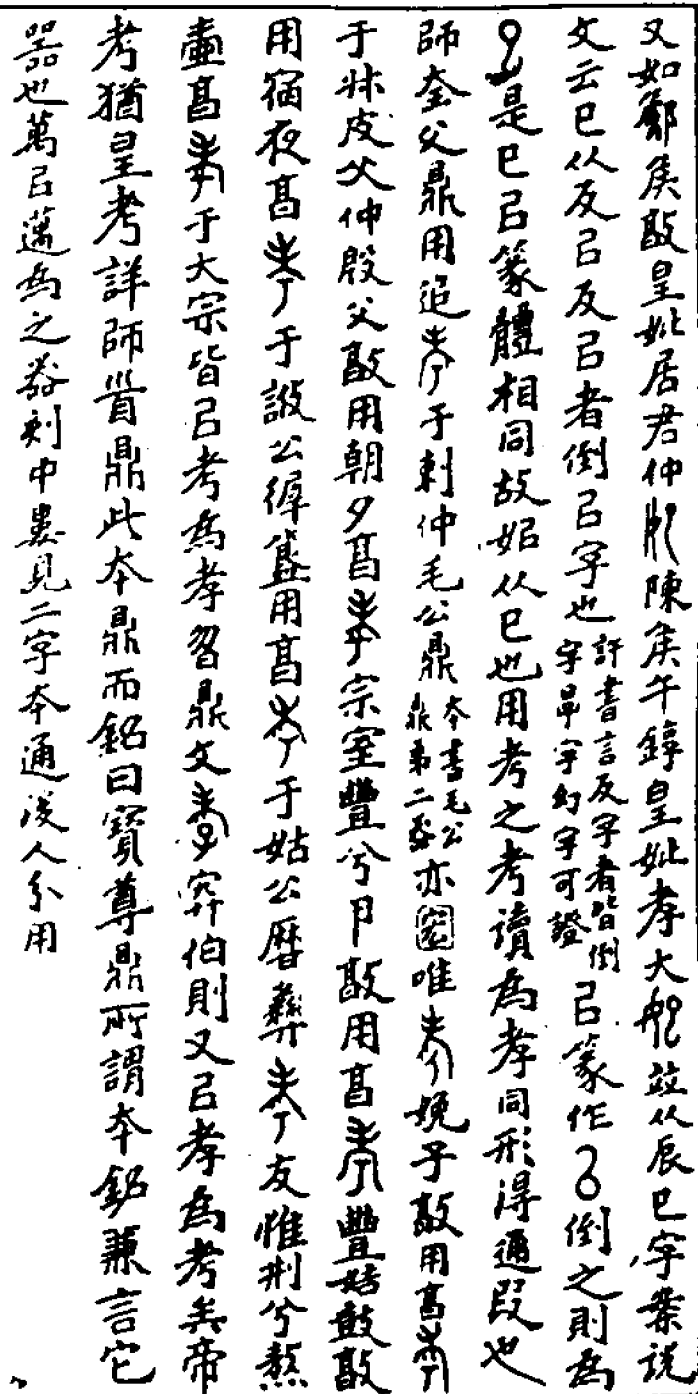 又如鄬侯敦皇妣居君仲𡚱陳侯午錞皇妣孝大妃竝从辰巳字案說
文云巳从反㠯反㠯者倒㠯字也許書言反字者皆倒字㫗字幻字可證㠯篆作倒之則為
是巳㠯篆體相同故妃从巳也用考之考讀為孝同形得通叚也
師奎父鼎用追孝于剌仲毛公鼎本書毛公鼎弟二器亦唯孝㛯子敦用亯孝
于牀皮父仲殷父敦用朝夕亯孝宗室豐兮𡰥敦用亯孝豐姞敦敦
用宿夜亯孝于諔公繛簋用亯孝于姑公曆彝孝友惟刑兮熬
壷亯孝于大宗皆㠯考為孝曶鼎文孝弈伯則又㠯孝為考矣帝
考猶皇考詳師眉鼎此本鼎而銘曰寶尊鼎所謂本銘兼言它
器也萬㠯邁為之器刻中婁見二字本通後人分用